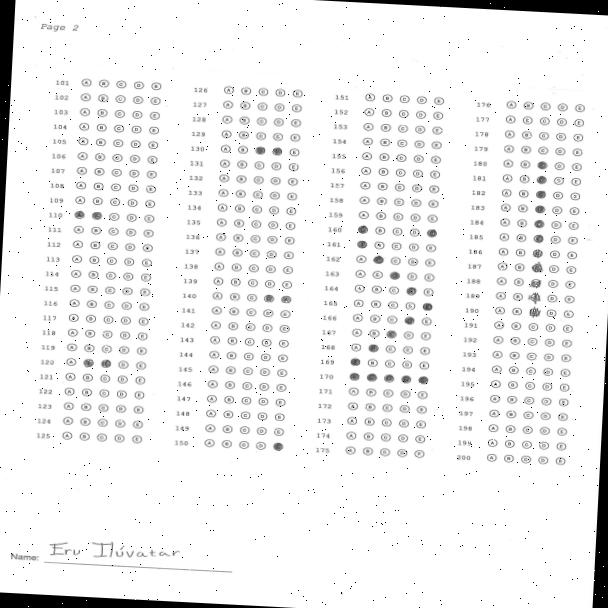 Page 2
101 A B C D E
102 A B C D E
103 A B C D E
104 A B C D E
105 A B C D E
106 A B C D E
107 A B C D E
108 A B C D E
109 A B C D E
110 A C C D E
111 A B C D E
112 A B C D E
113 A B C D E
114 A B C D E
115 A B C D E
116 A B C D E
117 A B C D E
118 A B C D E
119 A B C D E
120 A D E
121 A B C D E
122 A B C D E
123 A B C D E
124 A B C D E
125 A B C D E
126 A B C D E
127 A B C D E
128 A B C D E
129 A B C D E
130 A B E
131 A B C D E
132 A B C D E
133 A B C D E
134 A B C D E
135 A B C D E
136 A B C D E
137 A B C D E
138 A B C D E
139 A B C D E
140 A B C
141 A B C D E
142 A B C D E
143 A B C D E
144 A B C D E
145 A B C D E
146 A B C D E
147 A B C D E
148 A B C D E
149 A B C D E
150 A B C D
151 A B C D E
152 A B C D E
153 A B C D E
154 A B C D E
155 A B C D E
156 A B C D E
157 A B C D E
158 A B C D E
159 A B C D E
160 B C D
161 B C D E
162 A C D E
163 A B D E
164 A B C E
165 A B C D
166 A B C E
167 A B D E
168 A C D E
169 B C D E
170
171 A B C D E
172 A B C D E
173 A B C D E
174 A B C D E
175 A B C D E
176 A B C D E
177 A B C D E
178 A B C D E
179 A B C D E
180 A B D E
181 A B D E
182 A B D E
183 A B D E
184 A B D E
185 A B D E
186 A B D E
187 A B D E
188 A B D E
189 A B D E
190 A B D E
191 A B C D E
192 A B C D E
193 A B C D E
194 A B C D E
195 A B C D E
196 A B C D E
197 A B C D E
198 A B C D E
199 A B C D E
200 A B C D E
Name: Eru Ilúvatar